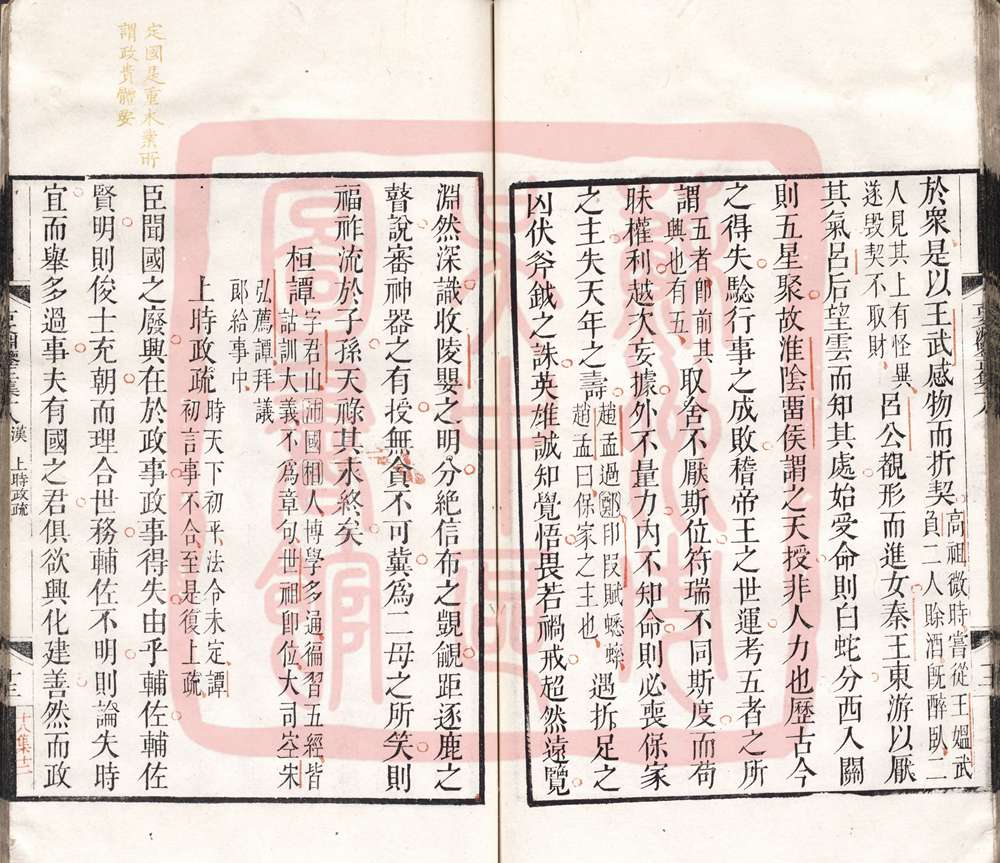 於衆是以王武感物而折契高祖微時嘗從王媼武
負二人賒酒既醉臥二
人見其上有怪異
遂毀契不取財呂公覩形而進女秦王東游以厭
其氣呂后望雲而知其處始受命則白蛇分西入關
則五星聚故淮陰畱侯謂之天授非人力也歷古今
之得失驗行事之成敗稽帝王之世運考五者之所
謂五者卽前其
興也有五取舍不厭斯位符瑞不同斯度而苟
昧權利越次妄據外不量力內不知命則必喪保家
之主失天年之壽趙孟過鄭印段賦蟋蟀
趙孟曰保家之主也遇折足之
凶伏斧鉞之誅英雄誠知覺悟畏若禍戒超然遠覽
淵然深識收陵嬰之明分絕信布之覬覦距逐鹿之
瞽說審神器之有授無貪不可冀爲二母之所笑則
福祚流於子孫天祿其永終矣
桓譚字君山沛國相人博學多通徧習五經皆
詁訓大義不爲章句世祖卽位大司空宋
弘薦譚拜議
郎給事中
上時政疏時天下初平法令未定譚
初言事不合至是復上疏
臣聞國之廢興在於政事政事得失由乎輔佐輔佐
賢明則俊士充朝而理合世務輔佐不明則論失時
宜而舉多過事夫有國之君俱欲興化建善然而政
定國是重本業所
謂政貴體要
漢 上時政疏
十三